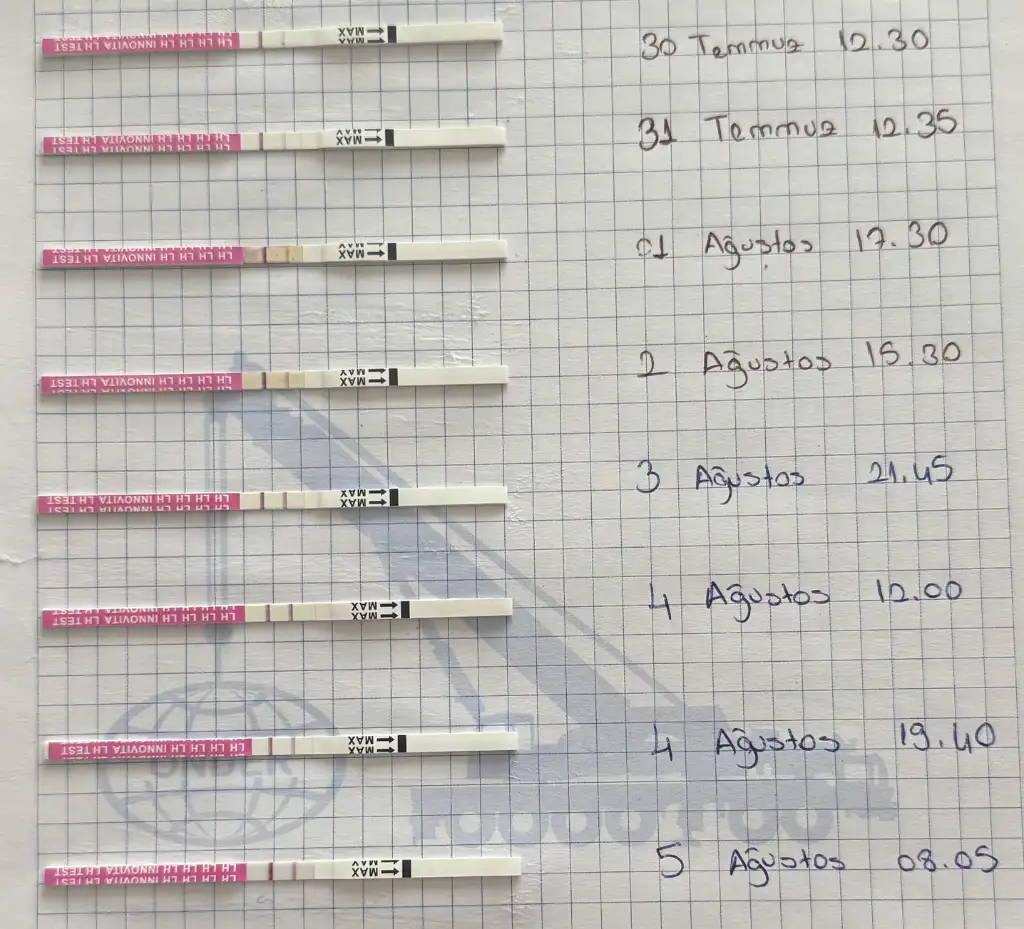 LH LH LH LH INNOVITA LH TEST MAX MAX 30 Temmuz 12.30
LH LH LH LH INNOVITA LH TEST MAX MAX 31 Temmuz 12.35
LH LH LH LH INNOVITA LH TEST MAX MAX 01 Ağustos 17.30
LH LH LH LH INNOVITA LH TEST MAX MAX 2 Ağustos 15.30
LH LH LH LH INNOVITA LH TEST MAX MAX 3 Ağustos 21.45
LH LH LH LH INNOVITA LH TEST MAX MAX 4 Ağustos 12.00
LH LH LH LH INNOVITA LH TEST MAX MAX 4 Ağustos 19.40
LH LH LH LH INNOVITA LH TEST MAX MAX 5 Ağustos 08.05